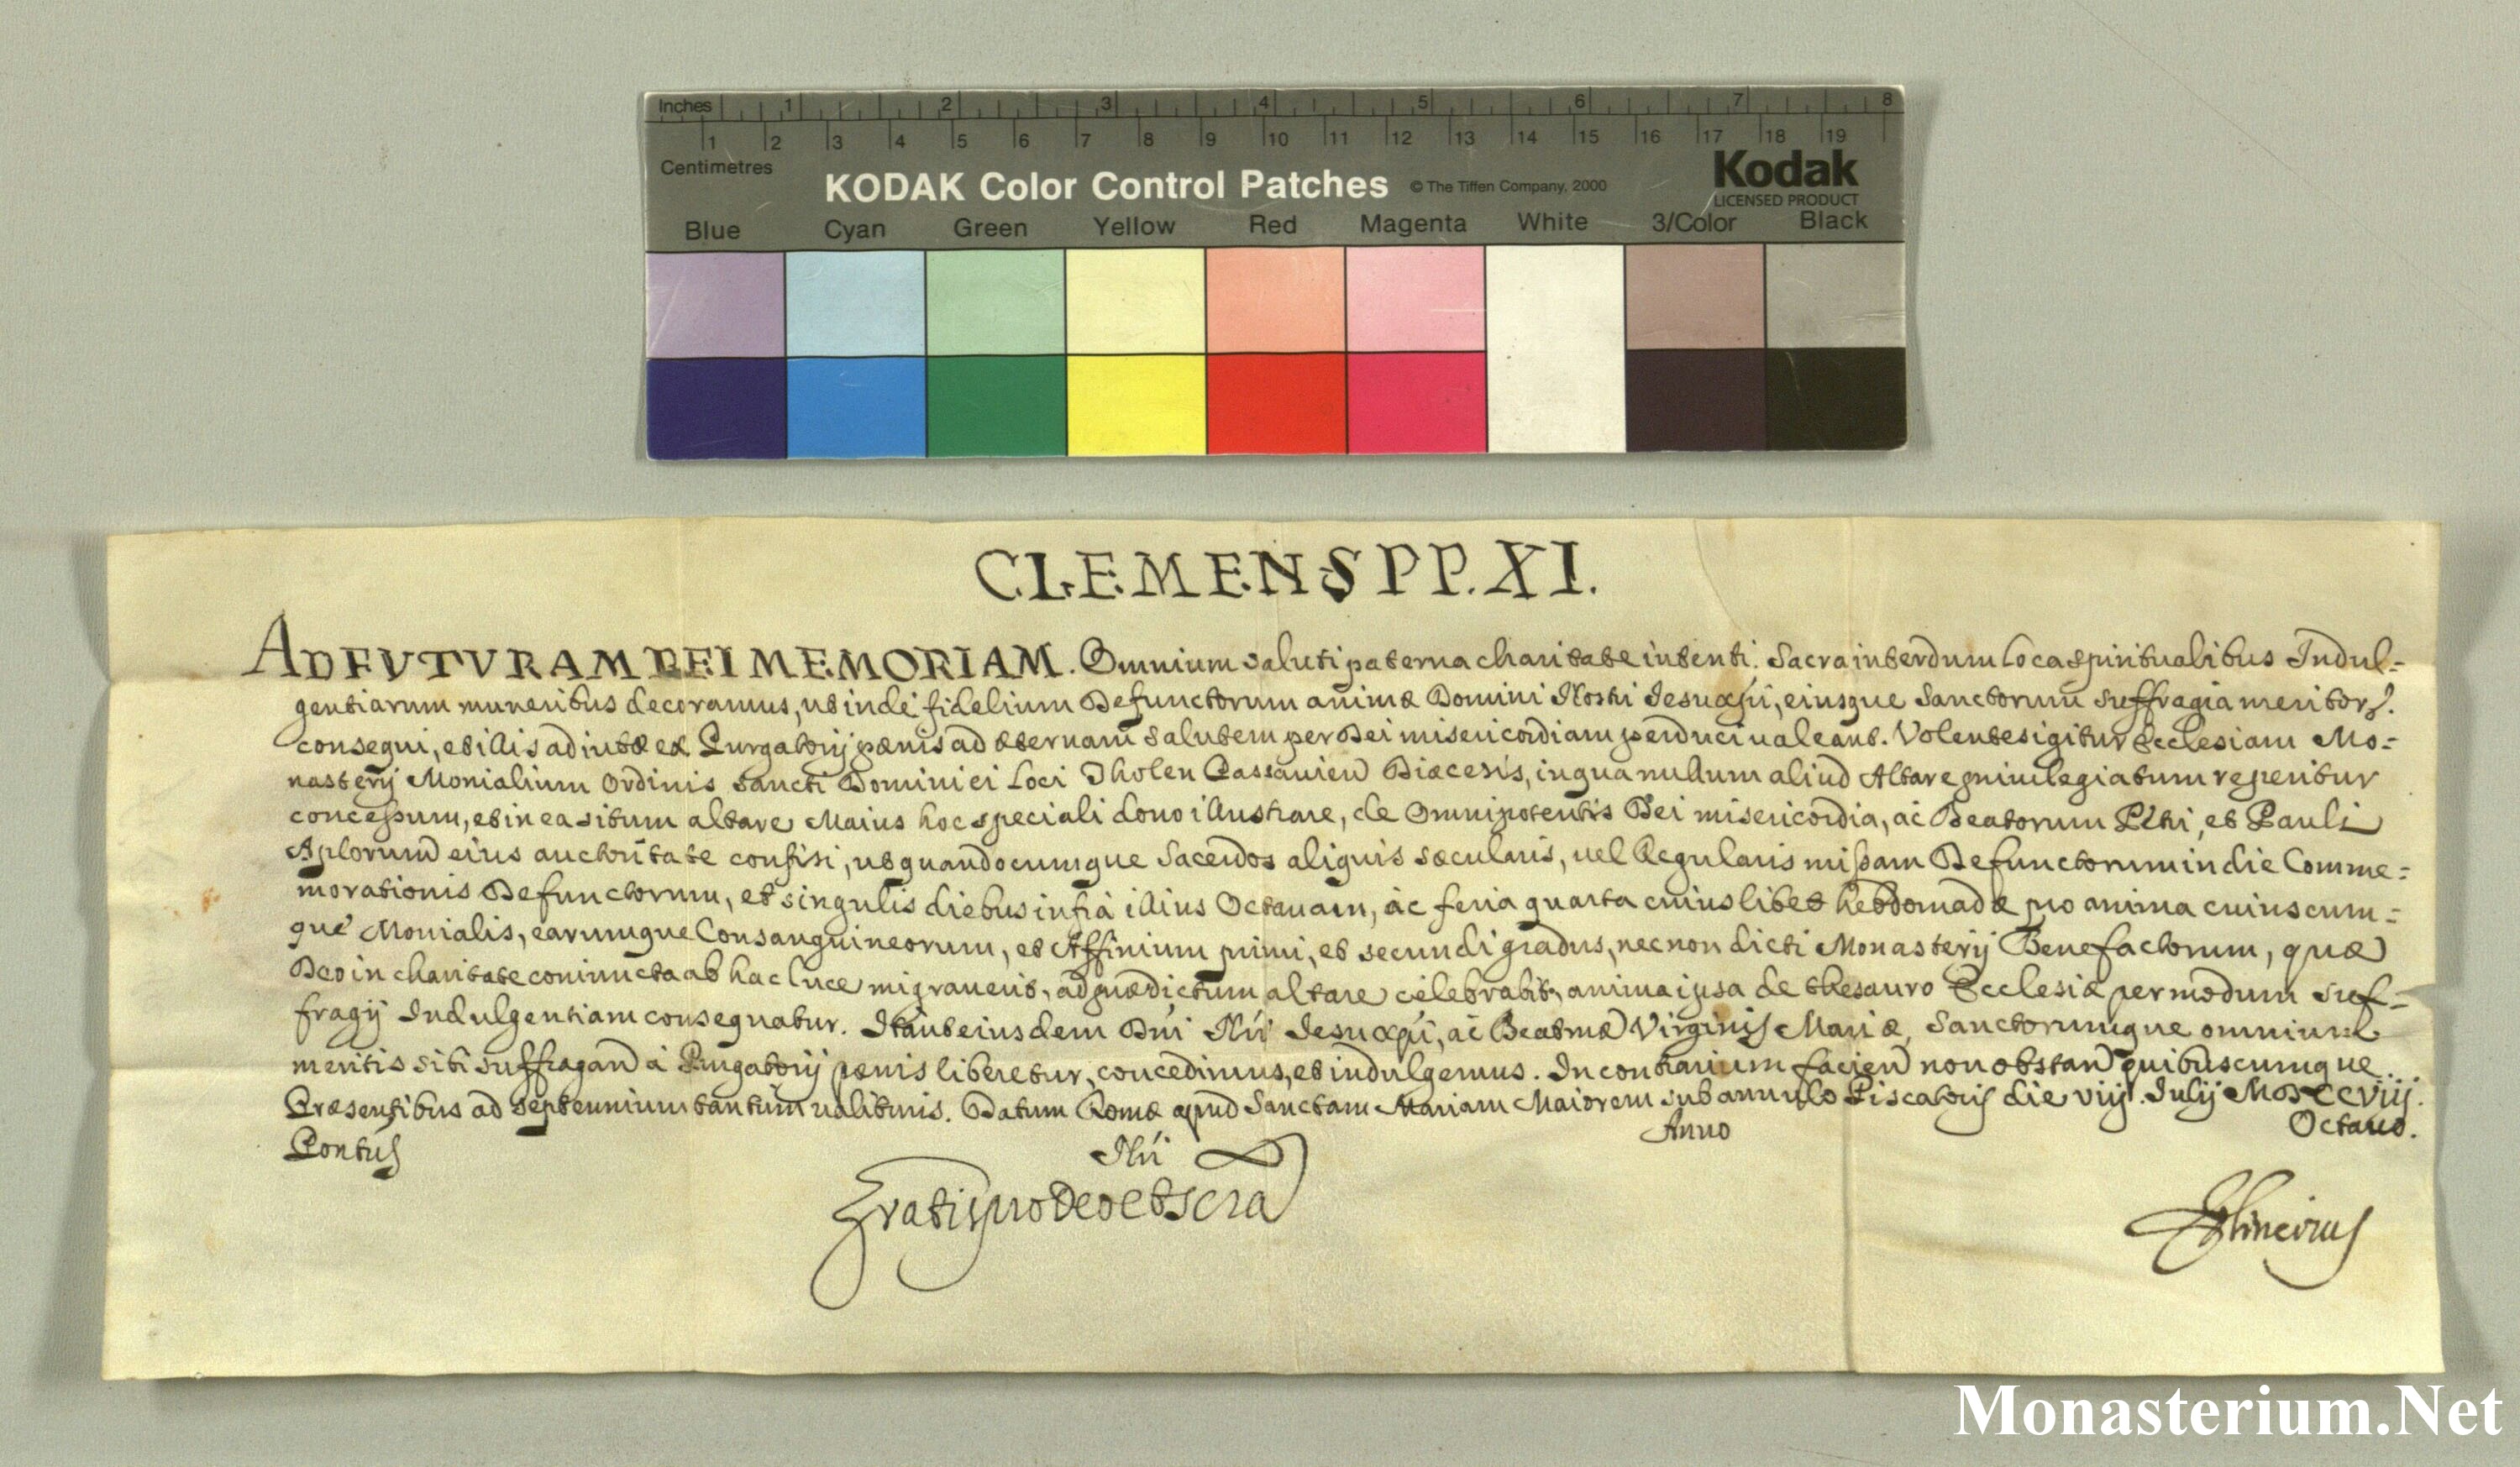 Inches 1 2 3 4 5 6 7 8
1 2 3 4 5 6 7 8 9 10 11 12 13 14 15 16 17 18 19
Centimetres
KODAK Color Control Patches © The Tiffen Company, 2000 Kodak
LICENSED PRODUCT
Blue Cyan Green Yellow Red Magenta White 3/Color Black
CLEMENS PP. XI.
AD FVTVRAM REI MEMORIAM. Omnium saluti paterna charitate intenti. Sacra interdum loca spiritualibus Indul-
gentiarum muneribus decoramus, ut inde fidelium Defunctorum animæ Domini Nostri Iesu xpi, eiusque Sanctorum suffragia meritor.
consequi, et illis adiutæ ex Purgatorij pœnis ad æternam salutem per Dei misericordiam perduci valeant. Volentes igitur Ecclesiam Mo-
nasterij Monialium Ordinis Sancti Dominici Loci Tholen Passauien Diæcesis, in qua nullum aliud Altare priuilegiatum reperitur
concessum, et in ea situm altare Maius hoc speciali dono illustrare, de Omnipotentis Dei misericordia, ac Beatorum Petri, et Pauli
Aplorum eius auctoritate confisi, ut quandocumque Sacerdos aliquis sæcularis, uel Regularis missam Defunctorum in die Comme-
morationis Defunctorum, et singulis diebus infra illius Octauam, ac feria quarta cuiuslibet hebdomadæ pro anima cuiuscum-
que Monialis, earumque Consanguineorum, et Affinium primi, et secundi gradus, necnon dicti Monasterij Benefactorum, quæ
Deo in charitate coniuncta ab hac luce migrauerit, ad prædictum altare celebrabit, anima ipsa de thesauro Ecclesiæ per modum suf-
fragij Indulgentiam consequatur. Ita ut eiusdem Dni Nri Iesu xpi, ac Beatmæ Virginis Mariæ, Sanctorumque omnium
meritis sibi suffragan à Purgatorij pœnis liberetur, concedimus, et indulgemus. In contrarium facien non obstan quibuscumque.
Præsentibus ad septennium tantum ualituris. Datum Romæ apud Sanctam Mariam Maiorem sub annulo Piscatoris die viij. Iulij MDCCVIIJ.
Pontus Nri Anno Octauo.
Gratis pro Deo et scra
Monasterium.Net